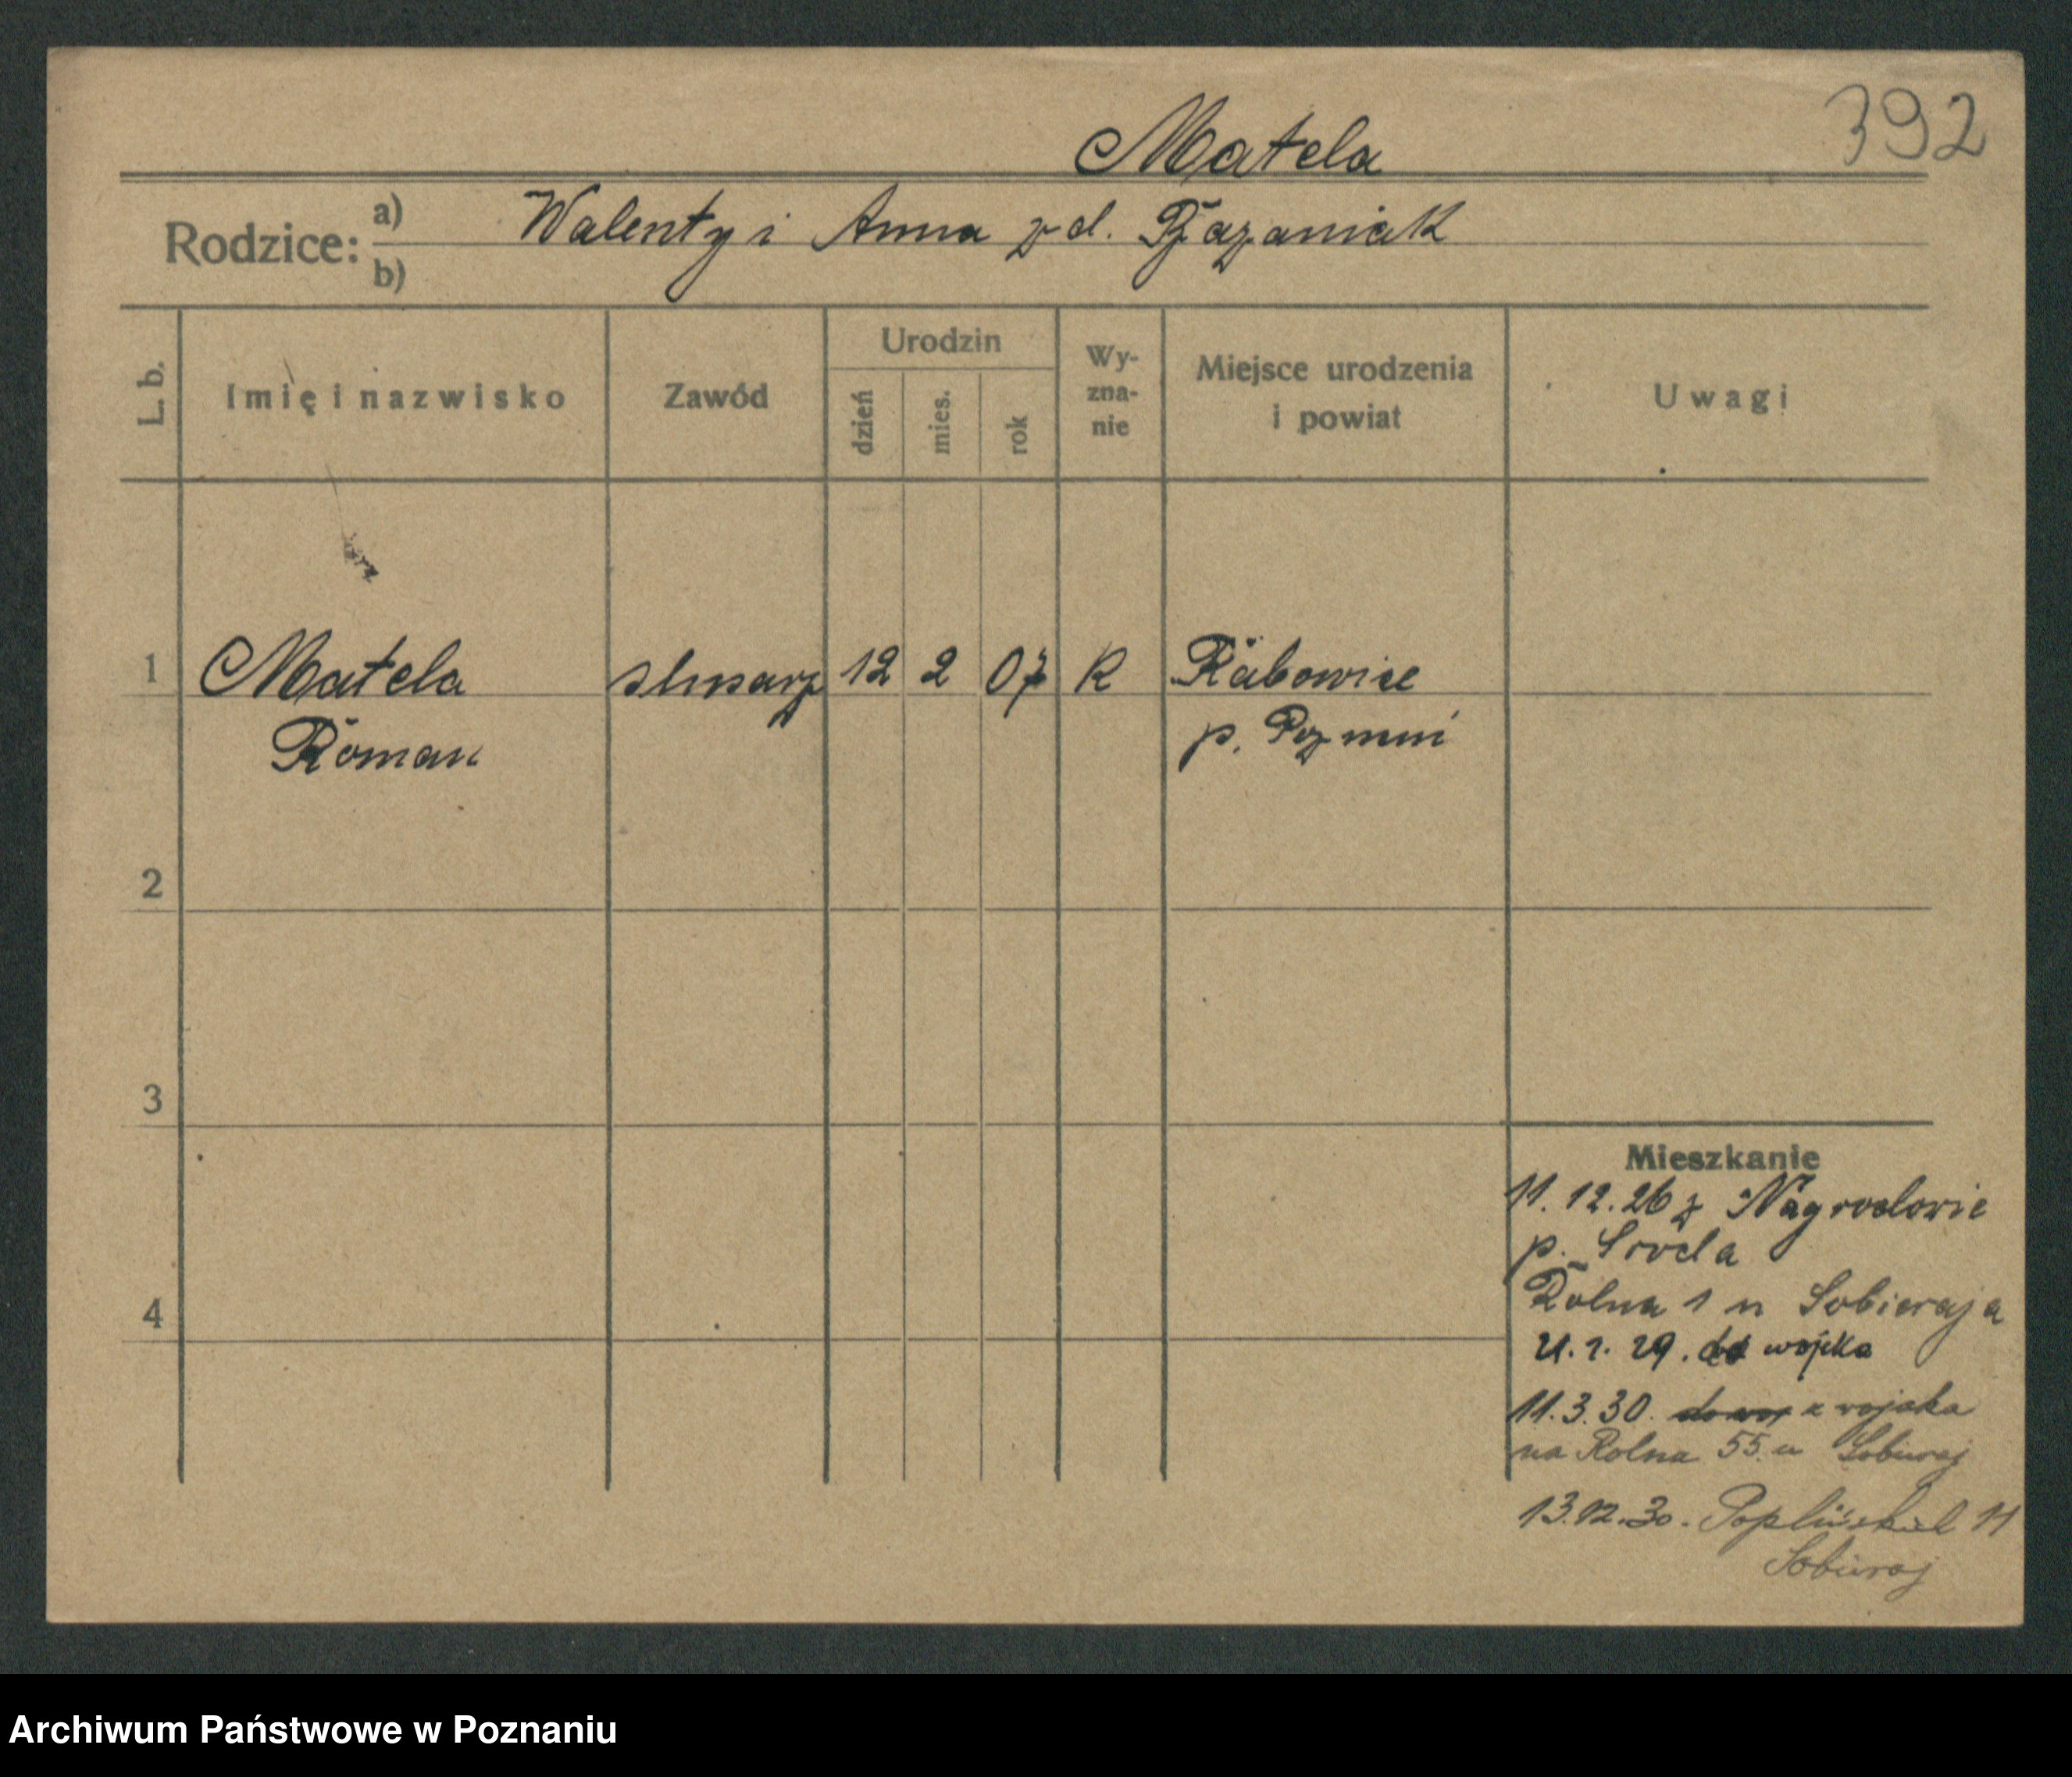 392
Matela
Rodzice: a) Walenty i Anna z d.
b)
L. b.
Imię i nazwisko
Zawód
Urodzin
dzień
mies.
rok
Wy-
zna-
nie
Miejsce urodzenia
i powiat
Uwagi
1 Matela ślusarz 12 2 07 R Rabowice
Roman p. Poznań
2
3
4
Mieszkanie
11. 12. 26 z
p. Środa
Rolna 1 u Sobieraja
21. 1. 29. do wojska
11. 3. 30. z wojska
na Rolna 55 u Sobieraj
13. 12. 30. 11
Sobieraj
Archiwum Państwowe w Poznaniu